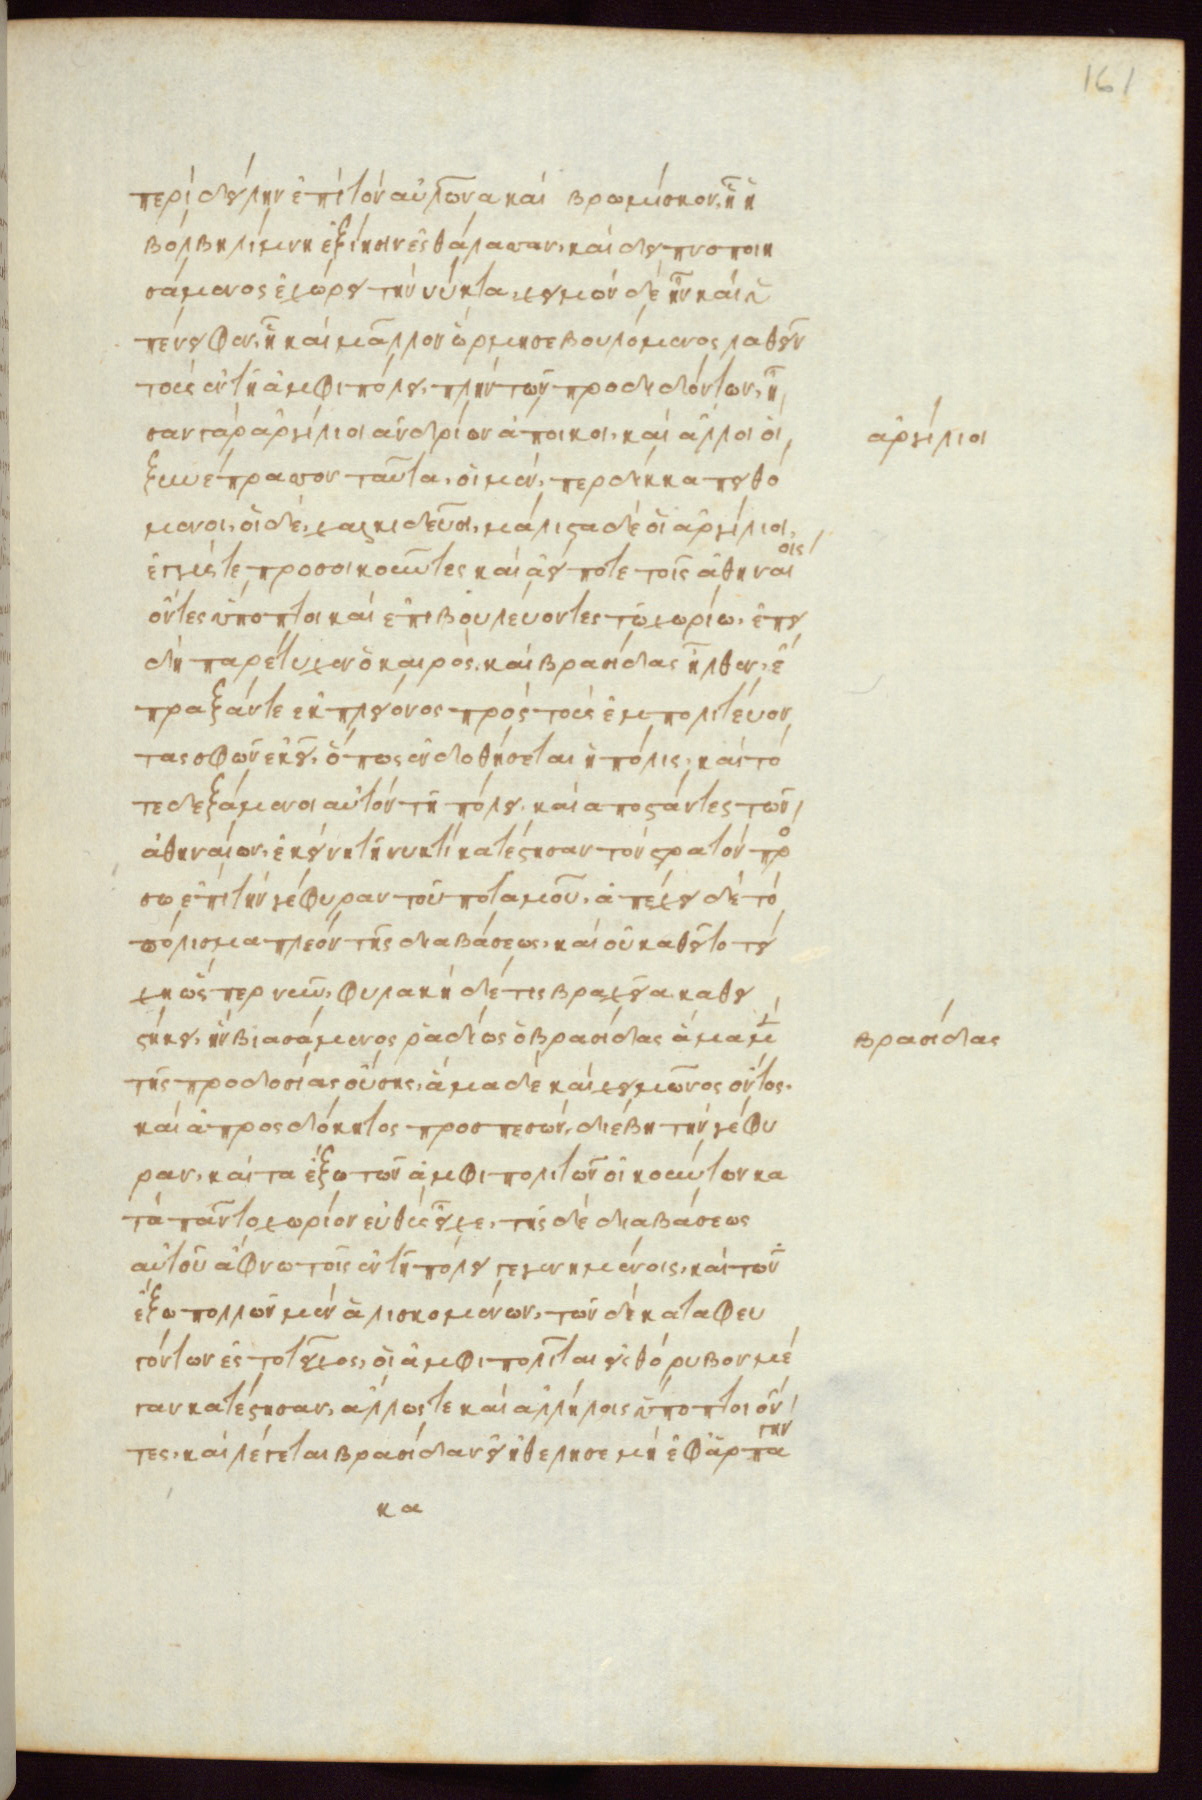 161
περὶ δείλην ἐπὶ τὸν αὐλῶνα καὶ βρωμίσκον, ᾗ ἡ
βόλβη λίμνη ἐξίησιν ἐς θάλασσαν, καὶ δειπνοποιη
σάμενος ἐχώρει τὴν νύκτα, χειμὼν δὲ ἦν καὶ ὑ
πένειφεν, ᾗ καὶ μᾶλλον ὥρμησε βουλόμενος λαθεῖν
τοὺς ἐν τῇ ἀμφιπόλει, πλὴν τῶν προδιδόντων, ἦ
σαν γὰρ ἀργίλιοι ἀνδρίων ἄποικοι, καὶ ἄλλοι οἳ
ἀργίλιοι
ξυνέπρασσον ταῦτα, οἱ μὲν, περδίκκα πειθό
μενοι, οἱ δὲ, χαλκιδεῦσι, μάλιστα δὲ οἱ ἀργίλιοι,
ἐγγύς τε προσοικοῦντες καὶ ἀεί ποτε τοῖς ἀθηναίοις
ὄντες ὕποπτοι καὶ ἐπιβουλεύοντες τῷ χωρίῳ, ἐπει
δὴ παρέτυχεν ὁ καιρὸς, καὶ βρασίδας ἦλθεν, ἔ
πραξάν τε ἐκ πλείονος πρὸς τοὺς ἐμπολιτεύον
τας σφῶν ἐκεῖ, ὅπως ἐνδοθήσεται ἡ πόλις, καὶ τό
τε δεξάμενοι αὐτὸν τῇ πόλει, καὶ αποστάντες τῶν
ἀθηναίων, ἐκείνῃ τῇ νυκτὶ κατέστησαν τὸν στρατὸν πρό
σω ἐπὶ τὴν γέφυραν τοῦ ποταμοῦ, ἀπέχει δὲ τὸ
πόλισμα πλέον τῆς διαβάσεως, καὶ οὐ καθεῖτο τεί
χη ὥσπερ νῦν, φυλακὴ δέ τις βραχεῖα καθει
στήκει, ἣν βιασάμενος ῥαδίως ὁ βρασίδας ἅμα μὲν
βρασίδας
τῆς προδοσίας οὔσης, ἅμα δὲ καὶ χειμῶνος ὄντος,
καὶ ἀπροςδόκητος προσπεσὼν, διέβη τὴν γέφυ
ραν, καὶ τα ἔξω τῶν ἀμφιπολιτῶν οἰκούντων κα
τὰ πᾶν τὸ χωρίον εὐθὺς εἶχε, τῆς δὲ διαβάσεως
αὐτοῦ ἄφνω τοῖς ἐν τῇ πόλει γεγενημένοις, καὶ τῶν
ἔξω πολλῶν μὲν ἁλισκομένων, τῶν δὲ καταφευ
γόντων ἐς τὸ τεῖχος, οἱ ἀμφιπολῖται εἰς θόρυβον μέ
γαν κατέστησαν, ἄλλως τε καὶ ἀλλήλοις ὕποπτοι ὄν
τες, καὶ λέγεται βρασίδαν εἰ ἠθέλησε μὴ ἐφ ἁρπαγὴν
κα